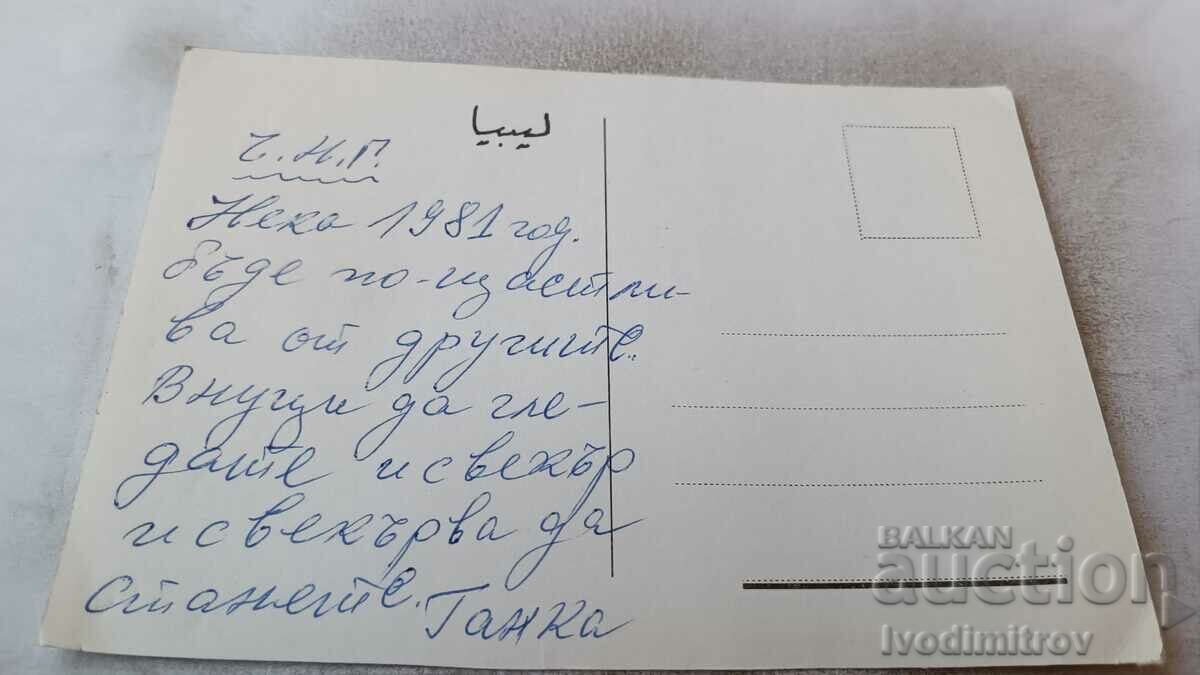 ليبيا
Ч.Н.Г.
Нека 1981 год.
бъде по-щастли-
ва от другите.
Внуци да гле-
дате и свекър
и свекърва да
станете.
Ганка
BALKAN
auction
Ivodimitrov